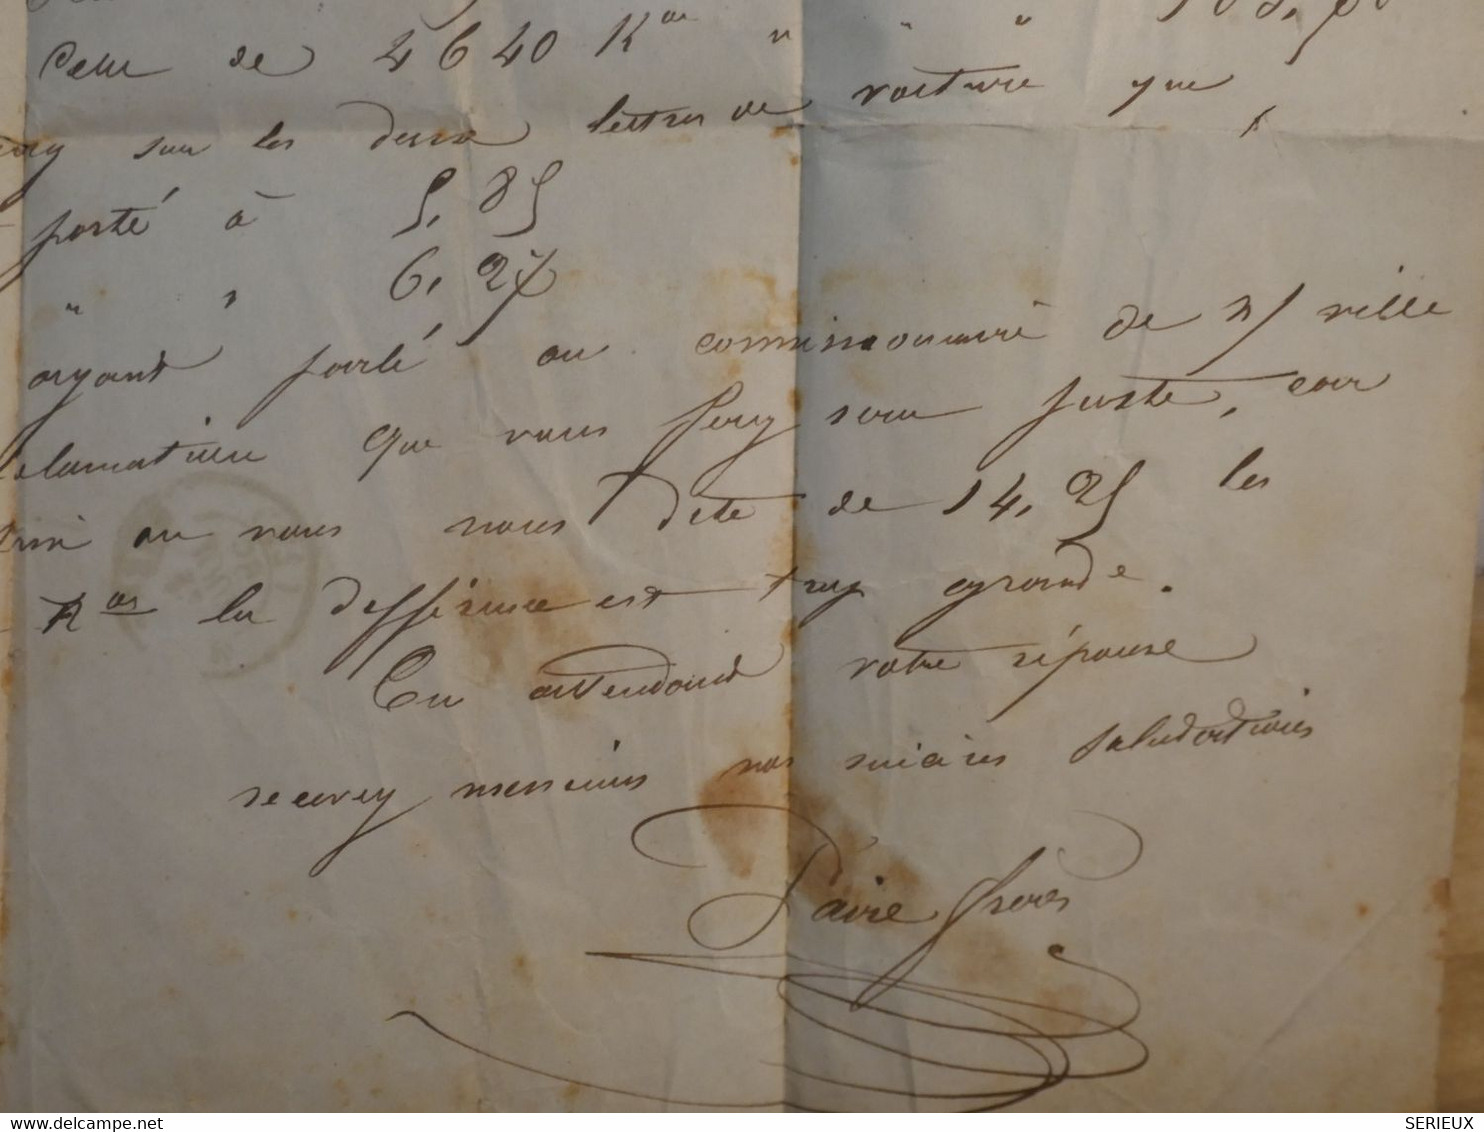 Celle de 4640 Kos " " "
sur les deux lettres de voiture que
porté à 5,85
" " 6,27
ayant parlé au commissionnaire de n/ ville
que vous serez juste, car
ou vous nous dete de 14,25 les
Kos la defférence est trop grande.
En attendant votre réponse
recevez messieurs nos salutations
Paire frères
delcampe.net
SERIEUX